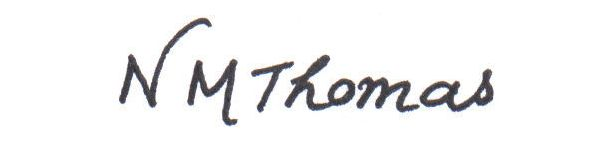 N M Thomas